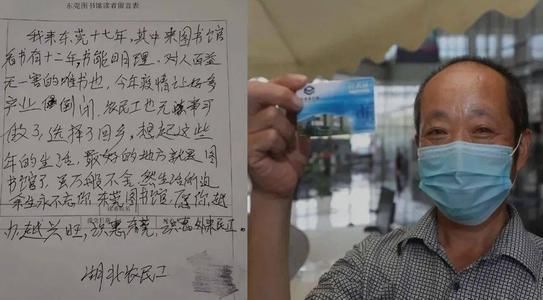 东莞图书馆读者留言表
我来东莞十七年,其中来图书馆
看书有十二年,书能明理,对人百益
无一害的唯书也,今年疫情让好多
产业倒闭,农民工也无事可
做了,选择了回乡,想起这些
年的生活,最好的地方就是图
书馆了,虽万般不舍,然生活所迫,
余生永不忘你,东莞图书馆,愿你越
办越兴旺,识惠东莞,识惠外来民工。
湖北农民工